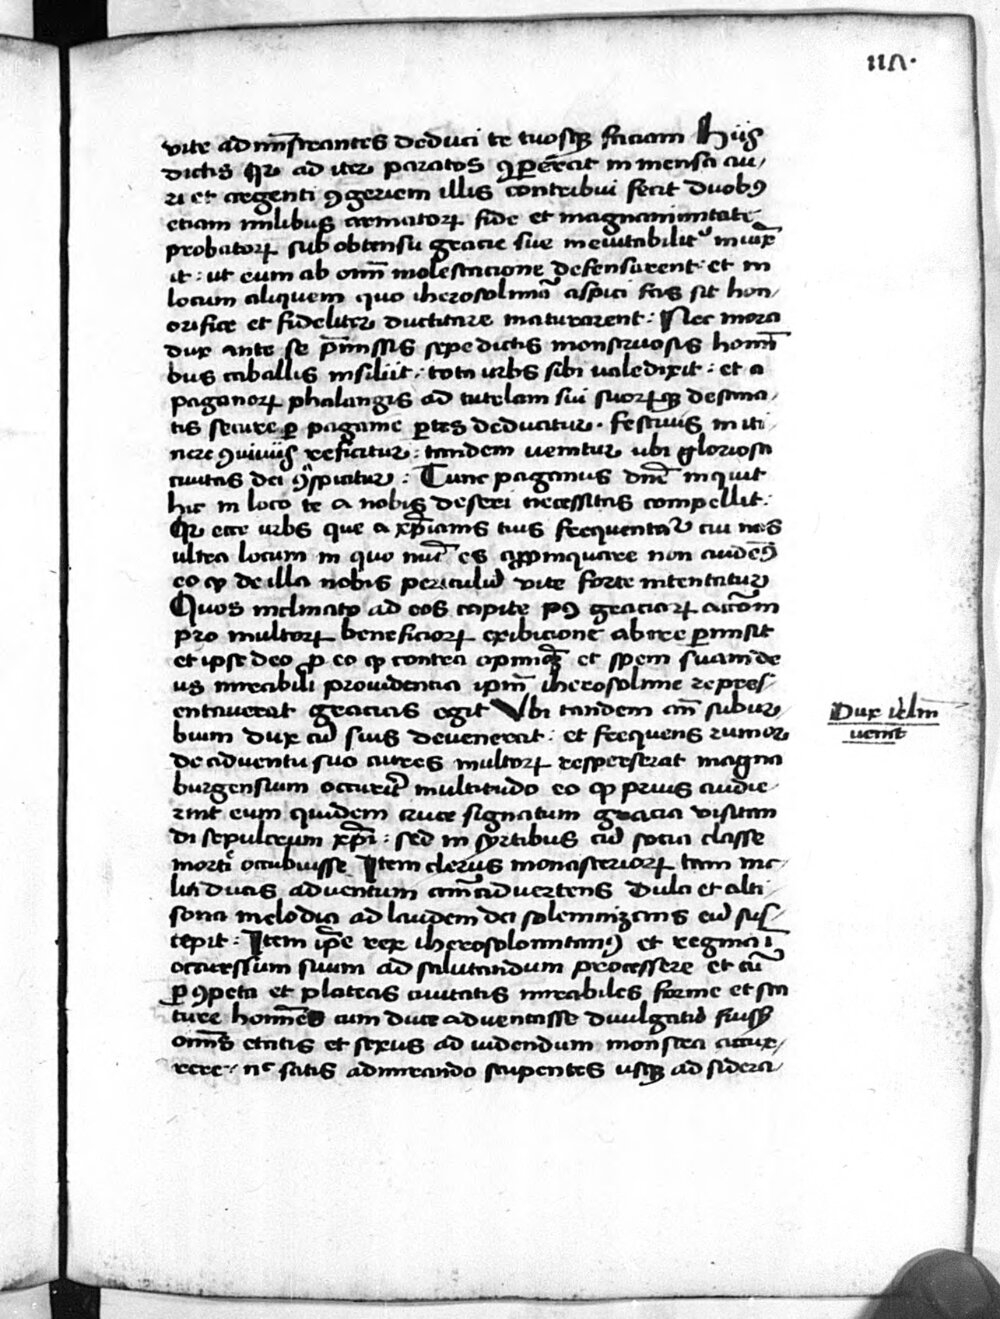 117.
vite administrantes deduci te tuosque faciam Hiis
dictis Qr ad iter paratos ꝯpererat in mensa au/
ri et argenti ꝯgeriem illis contribui fecit duobꝰ
etiam milibus armatoꝝ fide et magnanimitate
probatoꝝ sub obtensu gracie sue ineuitabilitˀ iniux̄
it : ut eum ab om̄i molestacione defensarent et in
locum aliquem quo iherosolima aspici fas sit hon/
orifice et fideliter ductitare maturarent : Nec mora
dux ante se p̄missis sepedictis monstruosis homī
bus caballis insiliit . tota urbs sibi valedixit : et a
paganoꝝ phalangis ad tutelam sui suoꝝqꝫ destina/
tis secure ꝑ paganie ꝑtes deducitur . festiuis in iti/
nere ꝯuiuiis reficitur : tandem uenitur ubi gloriosa
ciuitas dei ꝯspicitur : Tunc paganus dn̄e inquit
hic in loco te a nobis deseri necessitas compellit :
Qr ecce urbs que a xp̄ianis tuis frequentatˀ cui nos
ultra locum in quo nūc es appropinquare non audemꝰ
eo ꝙ de illa nobis periculū vite forte intentatur
Quos inclinato ad eos capite pꝰ graciaꝝ accōm
pro multoꝝ beneficioꝝ exibicione abire ꝑmisit
et ipse deo ꝓ eo ꝙ contra opinionē et spem suam de
us mirabili prouidencia ipm̄ iherosolime repres/
entauerat gracias egit Vbi tandem in subur/
bium dux cū suis deuenerat : et frequens rumor
de aduentu suo aures multoꝝ resperserat magna
burgensium occurit multitudo eo ꝙ prius audie/
rint eum quidem cruce signatum gracia visitan
di sepulcrum xp̄i : sed in syrtibus cū socia classe
morti occubuisse Item clerus monasterioꝝ tam in/
liti ducis aduentum aīaduertens Dulci et alti/
sona melodia ad laudem dei solemnizans eū sus/
cepit : Item ip̄e rex iherosolomitanꝰ et regina ī
occurssum suum ad salutandum processere et cū
ꝑ ꝯpeta et plateas ciuitatis mirabiles forme et sta
ture homines cum duce aduentasse diuulgatū fuissꝫ
om̄is etatis et sexus ad uidendum monstra accur/
rere . nᶜ satis admirando stupentes usqꝫ ad sidera/
Dux ierlm
uenit